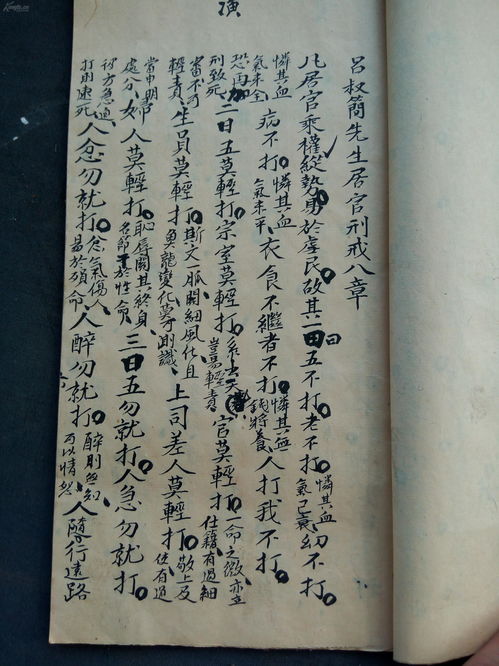 呂叔簡先生居官刑戒八章
凡居官乘權縱勢易於虐民故其一曰五不打老不打憐其血氣已衰幼不打
憐其血氣未全病不打憐其血氣未平衣食不繼者不打憐其無錢將養人打我不打
恐再加刑致死二曰五莫輕打宗室莫輕打系出天豈易輕責官莫輕打一命之微亦立仕籍有過細
審不可輕責生員莫輕打斯文一脈關細風化且魚龍變化莫測識上司差人莫輕打敬上及使有過
當申明處分婦人莫輕打恥辱關其終身名節干於性命三曰五勿就打人急勿就打
彼方急遽打則速死人忿勿就打忿氣傷人易於殞命人醉勿就打醉則無知可以情恕人隨行遠路